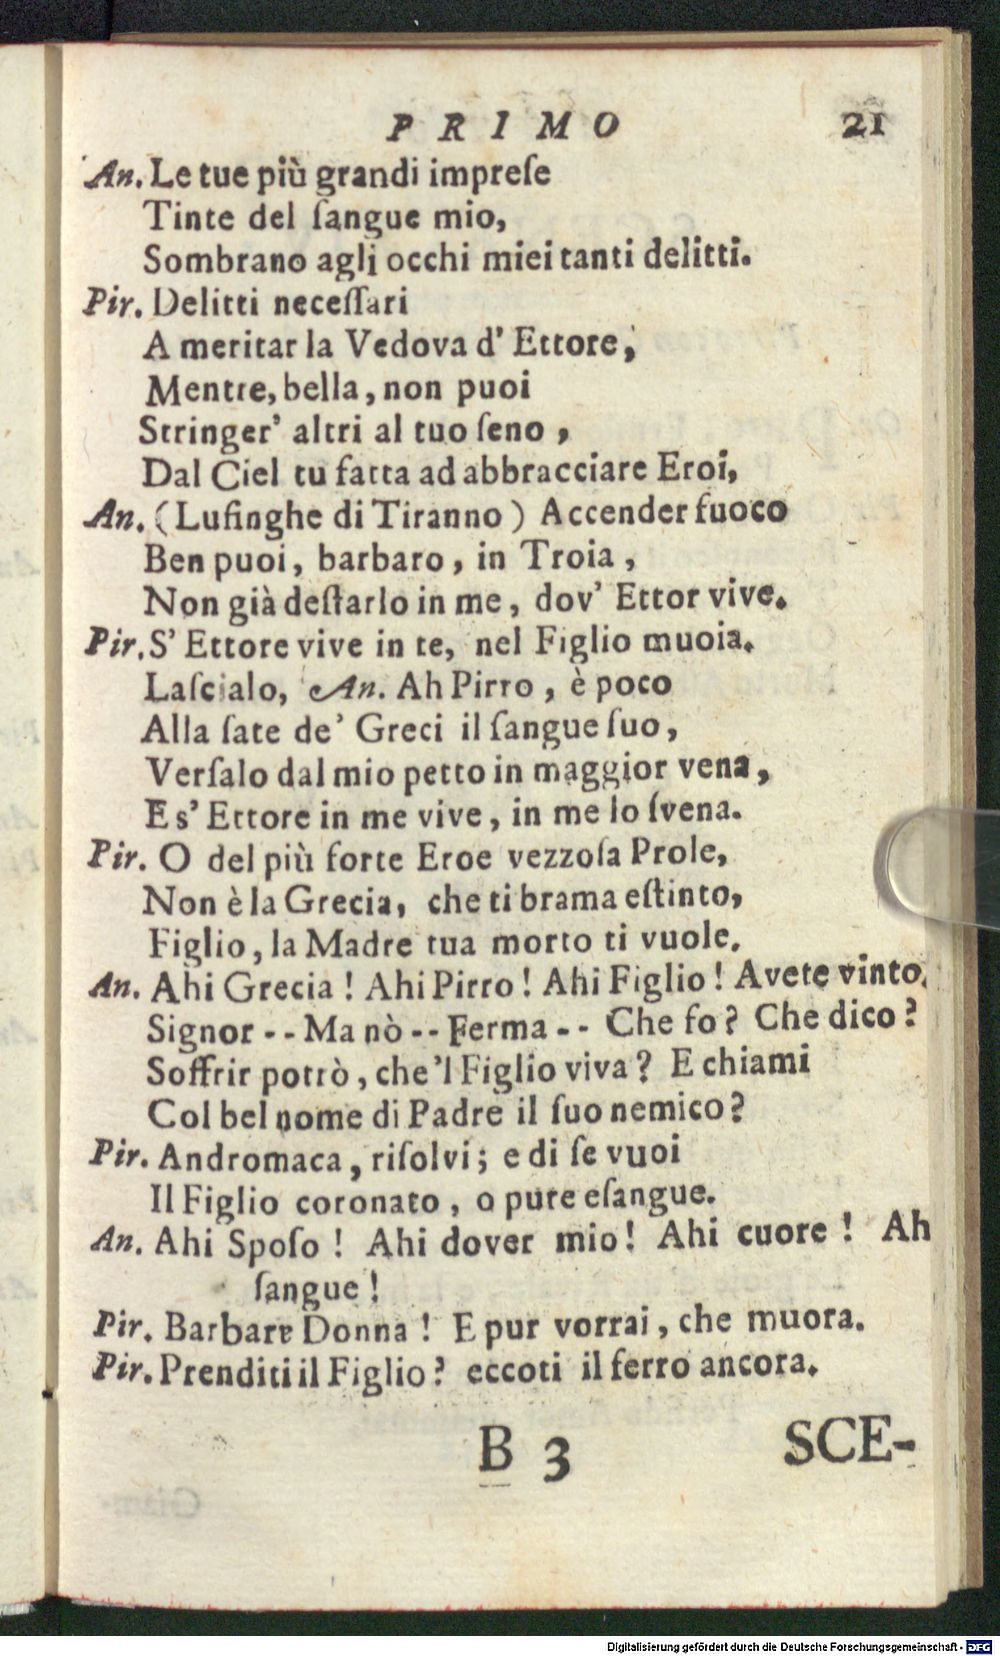 PRIMO 21
An. Le tue più grandi impreſe
Tinte del ſangue mio,
Sombrano agli occhi miei tanti delitti.
Pir. Delitti neceſſari
A meritar la Vedova d' Ettore,
Mentre, bella, non puoi
Stringer' altri al tuo ſeno,
Dal Ciel tu fatta ad abbracciare Eroi,
An. (Luſinghe di Tiranno) Accender fuoco
Ben puoi, barbaro, in Troia,
Non già deſtarlo in me, dov' Ettor vive.
Pir. S' Ettore vive in te, nel Figlio muoia.
Laſcialo, An. Ah Pirro, è poco
Alla ſate de' Greci il ſangue ſuo,
Verſalo dal mio petto in maggior vena,
E s' Ettore in me vive, in me lo ſvena.
Pir. O del più forte Eroe vezzoſa Prole,
Non è la Grecia, che ti brama eſtinto,
Figlio, la Madre tua morto ti vuole.
An. Ahi Grecia! Ahi Pirro! Ahi Figlio! Avete vinto.
Signor -- Ma nò -- Ferma -- Che fo? Che dico?
Soffrir potrò, che 'l Figlio viva? E chiami
Col bel nome di Padre il ſuo nemico?
Pir. Andromaca, riſolvi; e di ſe vuoi
Il Figlio coronato, o pure eſangue.
An. Ahi Spoſo! Ahi dover mio! Ahi cuore! Ah
ſangue!
Pir. Barbare Donna! E pur vorrai, che muora.
Pir. Prenditi il Figlio? eccoti il ferro ancora.
B 3 SCE-
Digitalisierung gefördert durch die Deutsche Forschungsgemeinschaft - DFG